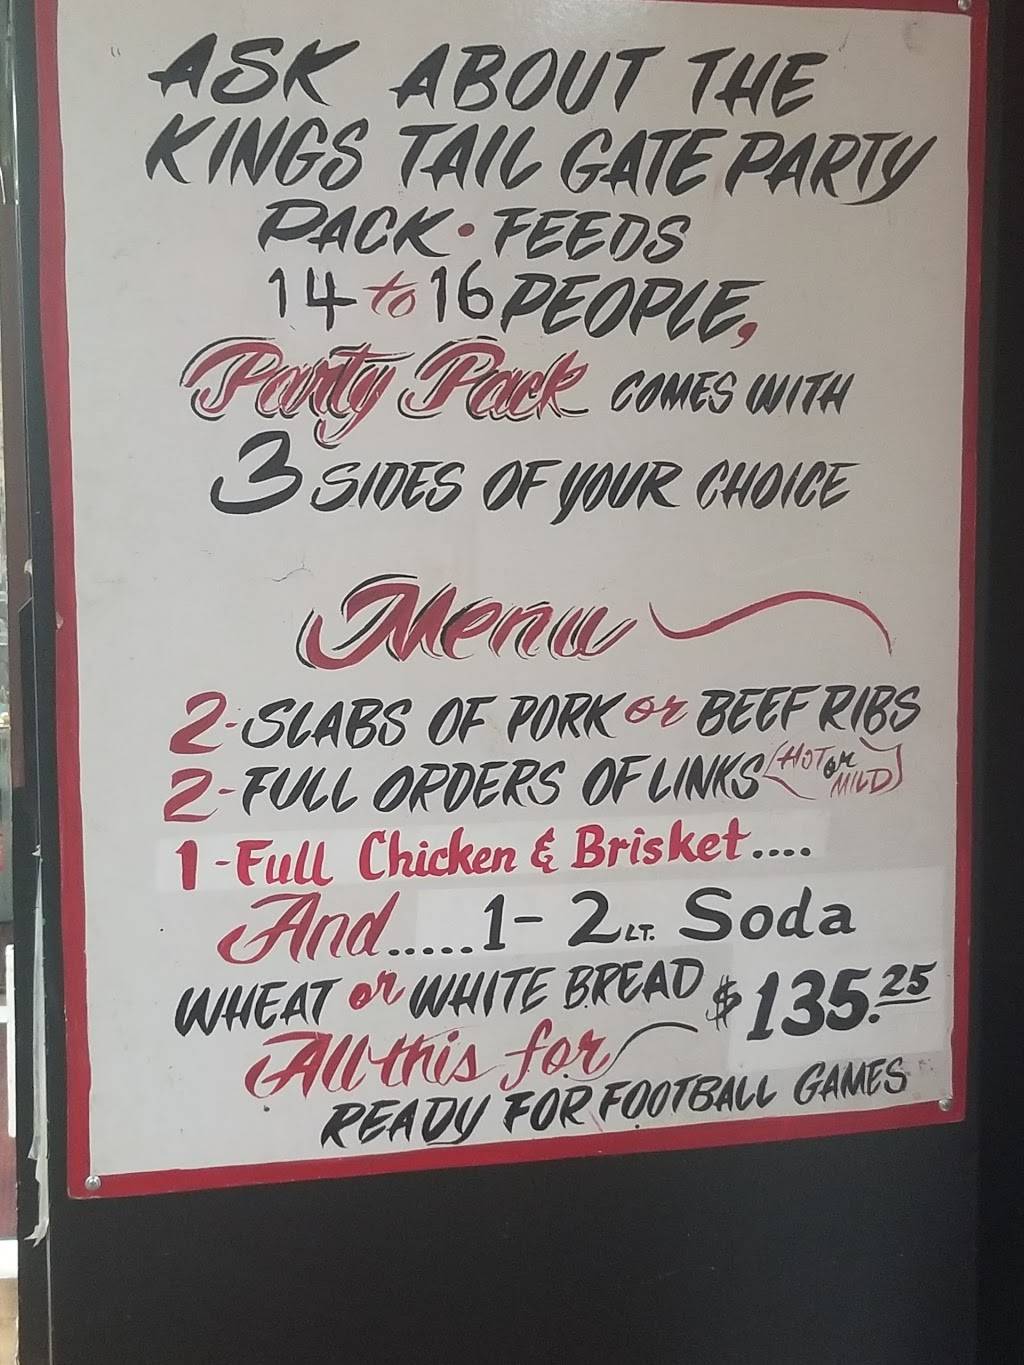 ASK ABOUT THE
KINGS TAIL GATE PARTY
PACK • FEEDS
14 to 16 PEOPLE,
Party Pack COMES WITH
3 SIDES OF YOUR CHOICE
Menu
2-SLABS OF PORK or BEEF RIBS
2-FULL ORDERS OF LINKS (HOT OR MILD)
1-Full Chicken & Brisket....
And.....1-2 LT. Soda
WHEAT or WHITE BREAD $135.25
All this for
READY FOR FOOTBALL GAMES